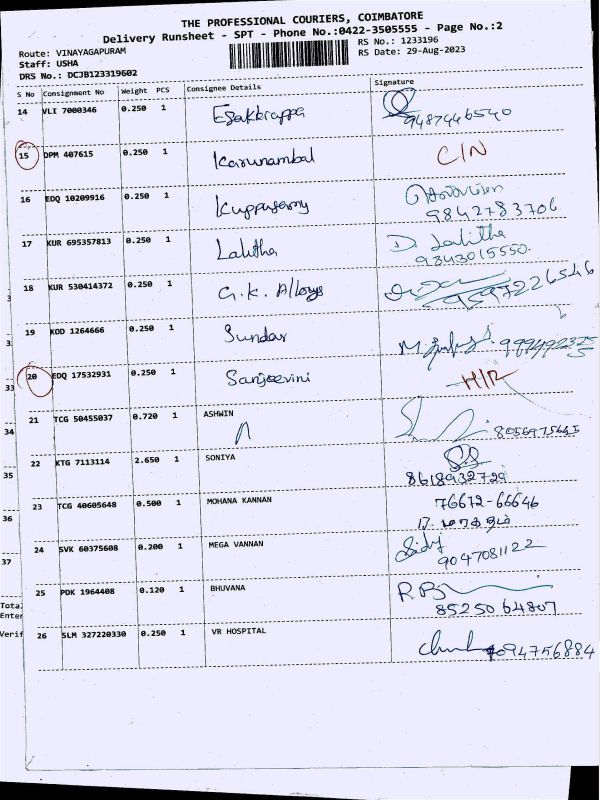 THE PROFESSIONAL COURIERS, COIMBATORE
Delivery Runsheet - SPT - Phone No.:0422-3505555 - Page No.:2
Route: VINAYAGAPURAM RS No.: 1233196
Staff: USHA RS Date: 29-Aug-2023
DRS No.: DCJB123319602
S No Consignment No Weight PCS Consignee Details Signature
14 VLI 7000346 0.250 1 Esakkiappa 9487446540
15 DPM 407615 0.250 1 Karunambal C/N
16 EDQ 10209916 0.250 1 Kuppusamy
9842783706
17 KUR 695357813 0.250 1 Lalitha D. Lalitha
9343015550.
18 KUR 530414372 0.250 1 G.K. Alloys 9597226546
19 KOD 1264666 0.250 1 Sundar M.
20 EDQ 17532931 0.250 1 Sanjeevini H/R
21 TCG 50455037 0.720 1 ASHWIN
22 KTG 7113114 2.650 1 SONIYA
8618932729
23 TCG 40605648 0.500 1 MOHANA KANNAN 76672-66646
24 SVK 60375608 0.200 1 MEGA VANNAN
9047081122
25 PDK 1964408 0.120 1 BHUVANA
8525064807
26 SLM 327220330 0.250 1 VR HOSPITAL
3
3
33
34
35
36
37
Tota
Enter
Verif